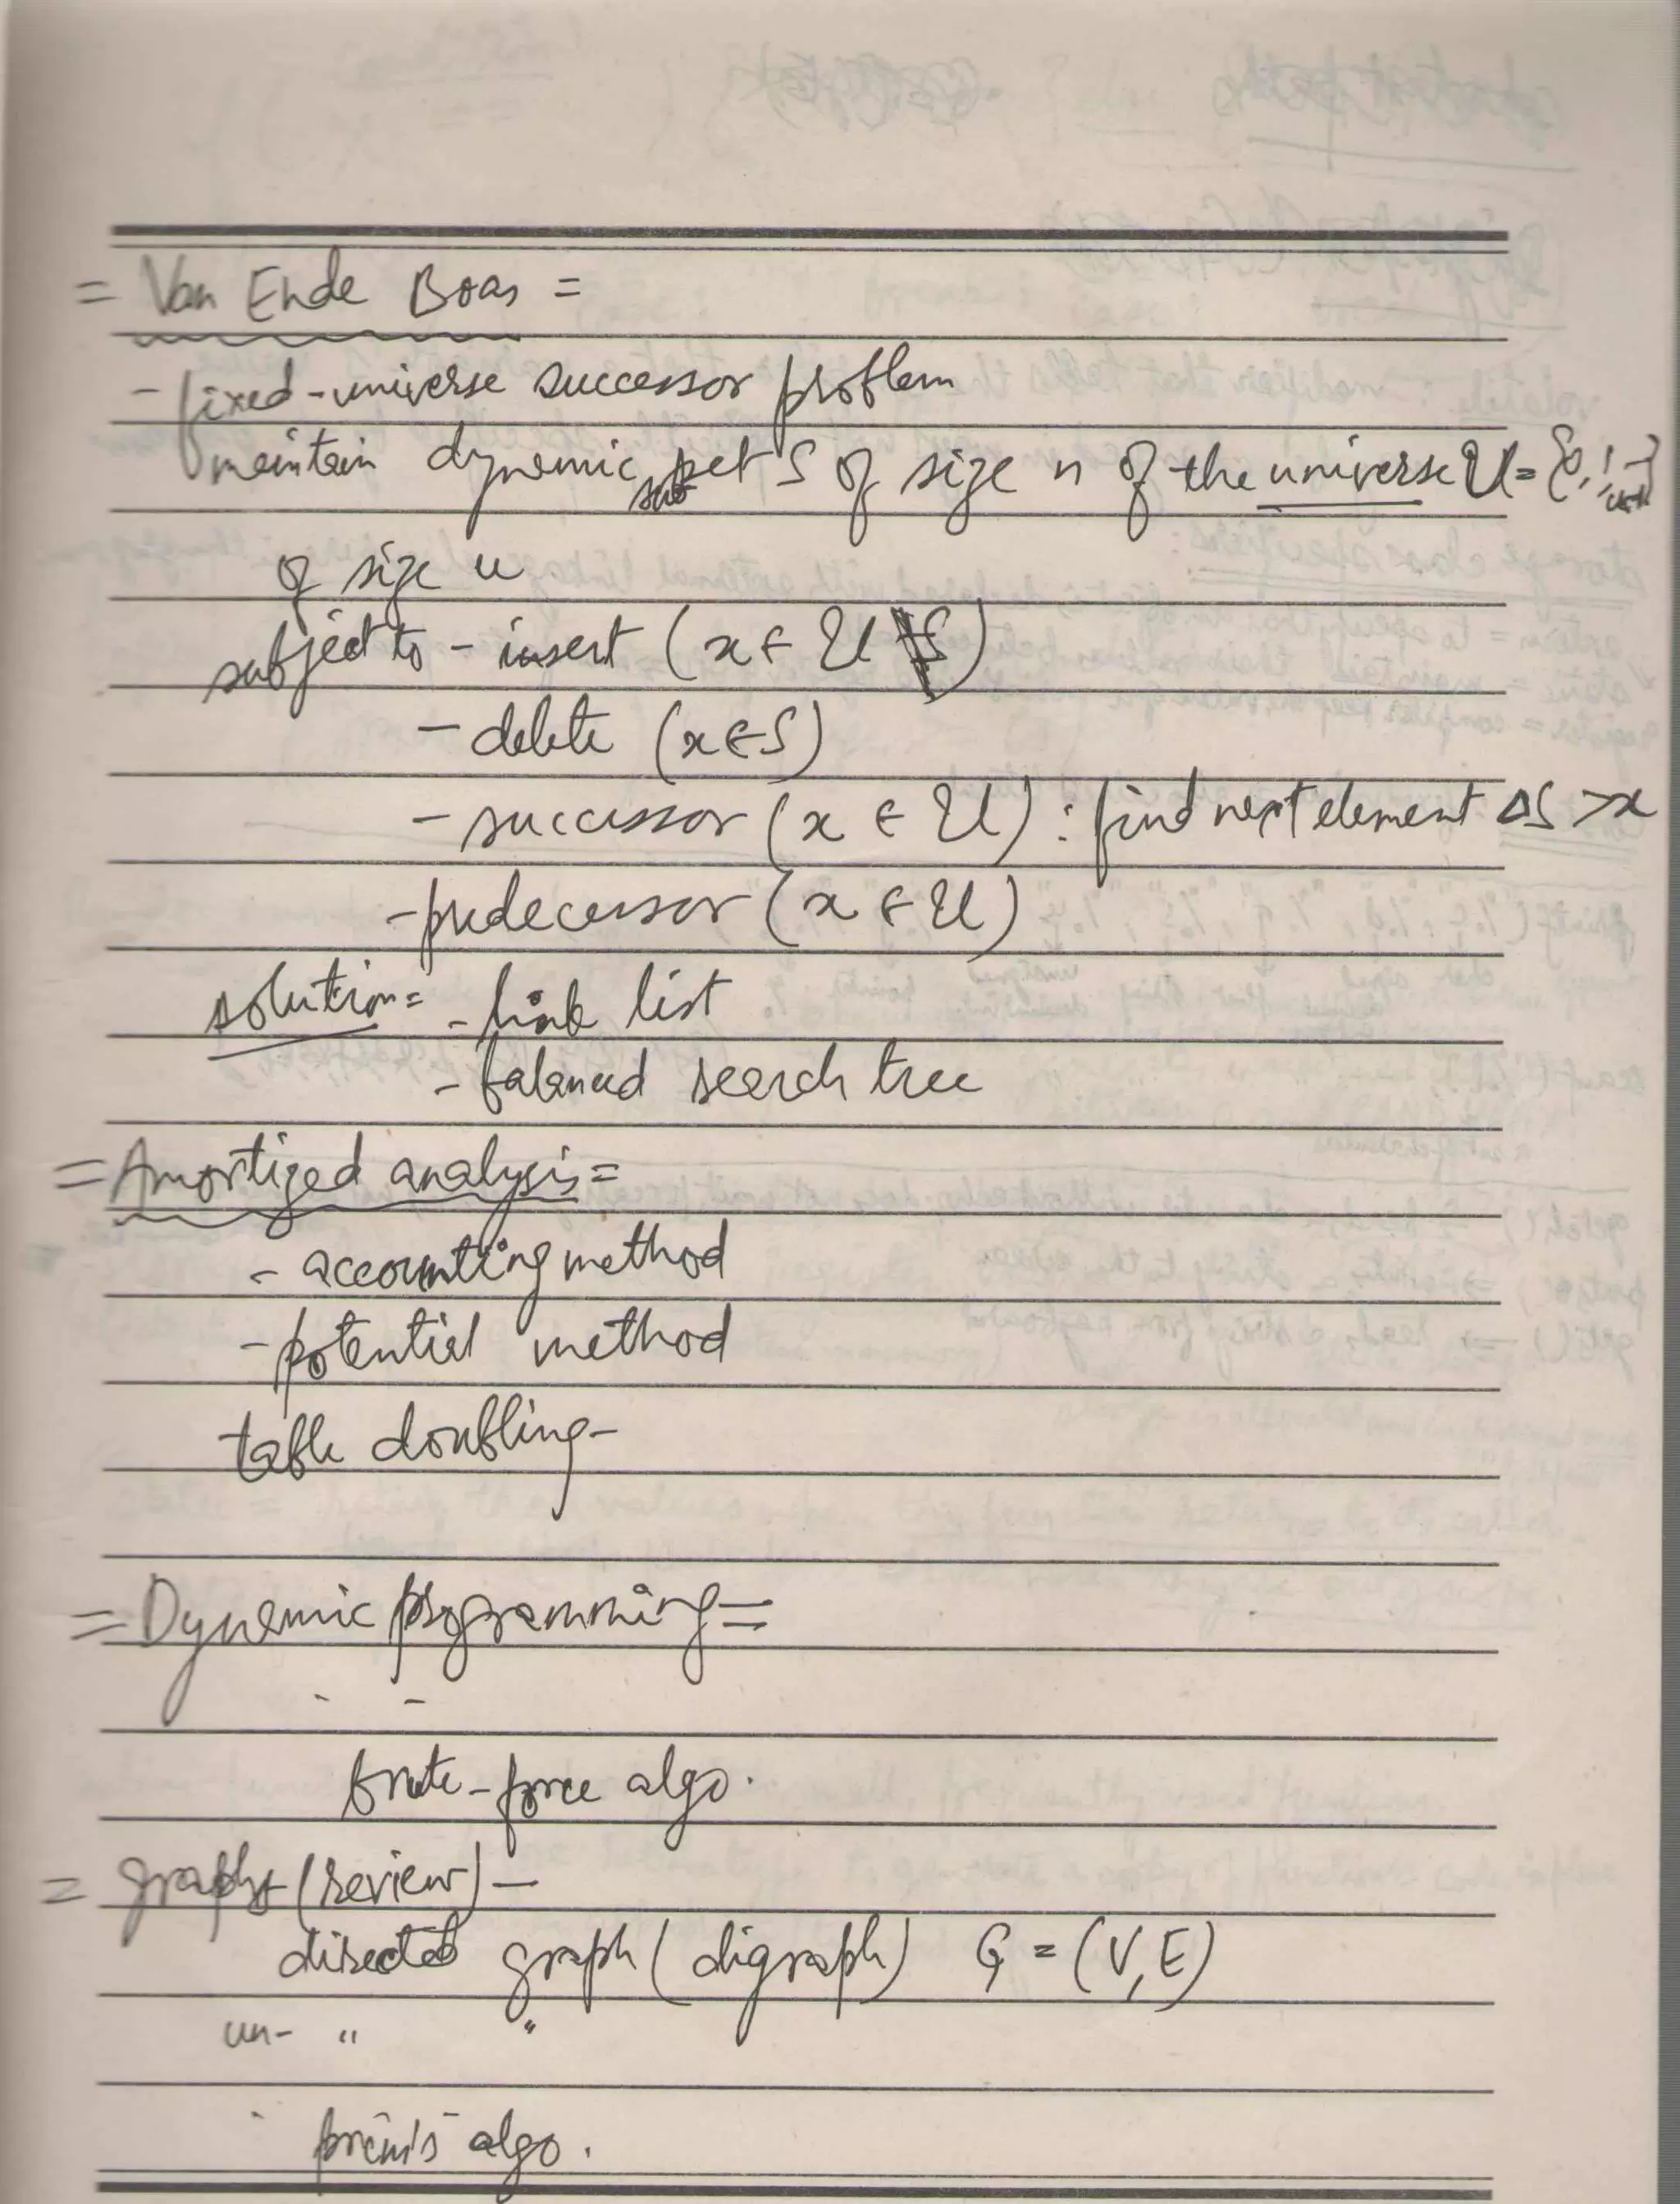 = Van Ende Boas =
- fixed-universe successor problem
maintain dynamic subset S of size n of the universe U = {0, 1, - u-1}
of size u
subject to - insert (x ∈ U \ S)
- delete (x ∈ S)
- successor (x ∈ U) : find next element ΔS > x
- predecessor (x ∈ U)
solution = - link list
- balanced search tree
= Amortized analysis =
- accounting method
- potential method
table doubling -
= Dynamic programming =
brute-force algo.
= graphs (review) -
directed graph (digraph) G = (V, E)
un- " "
prim's algo.